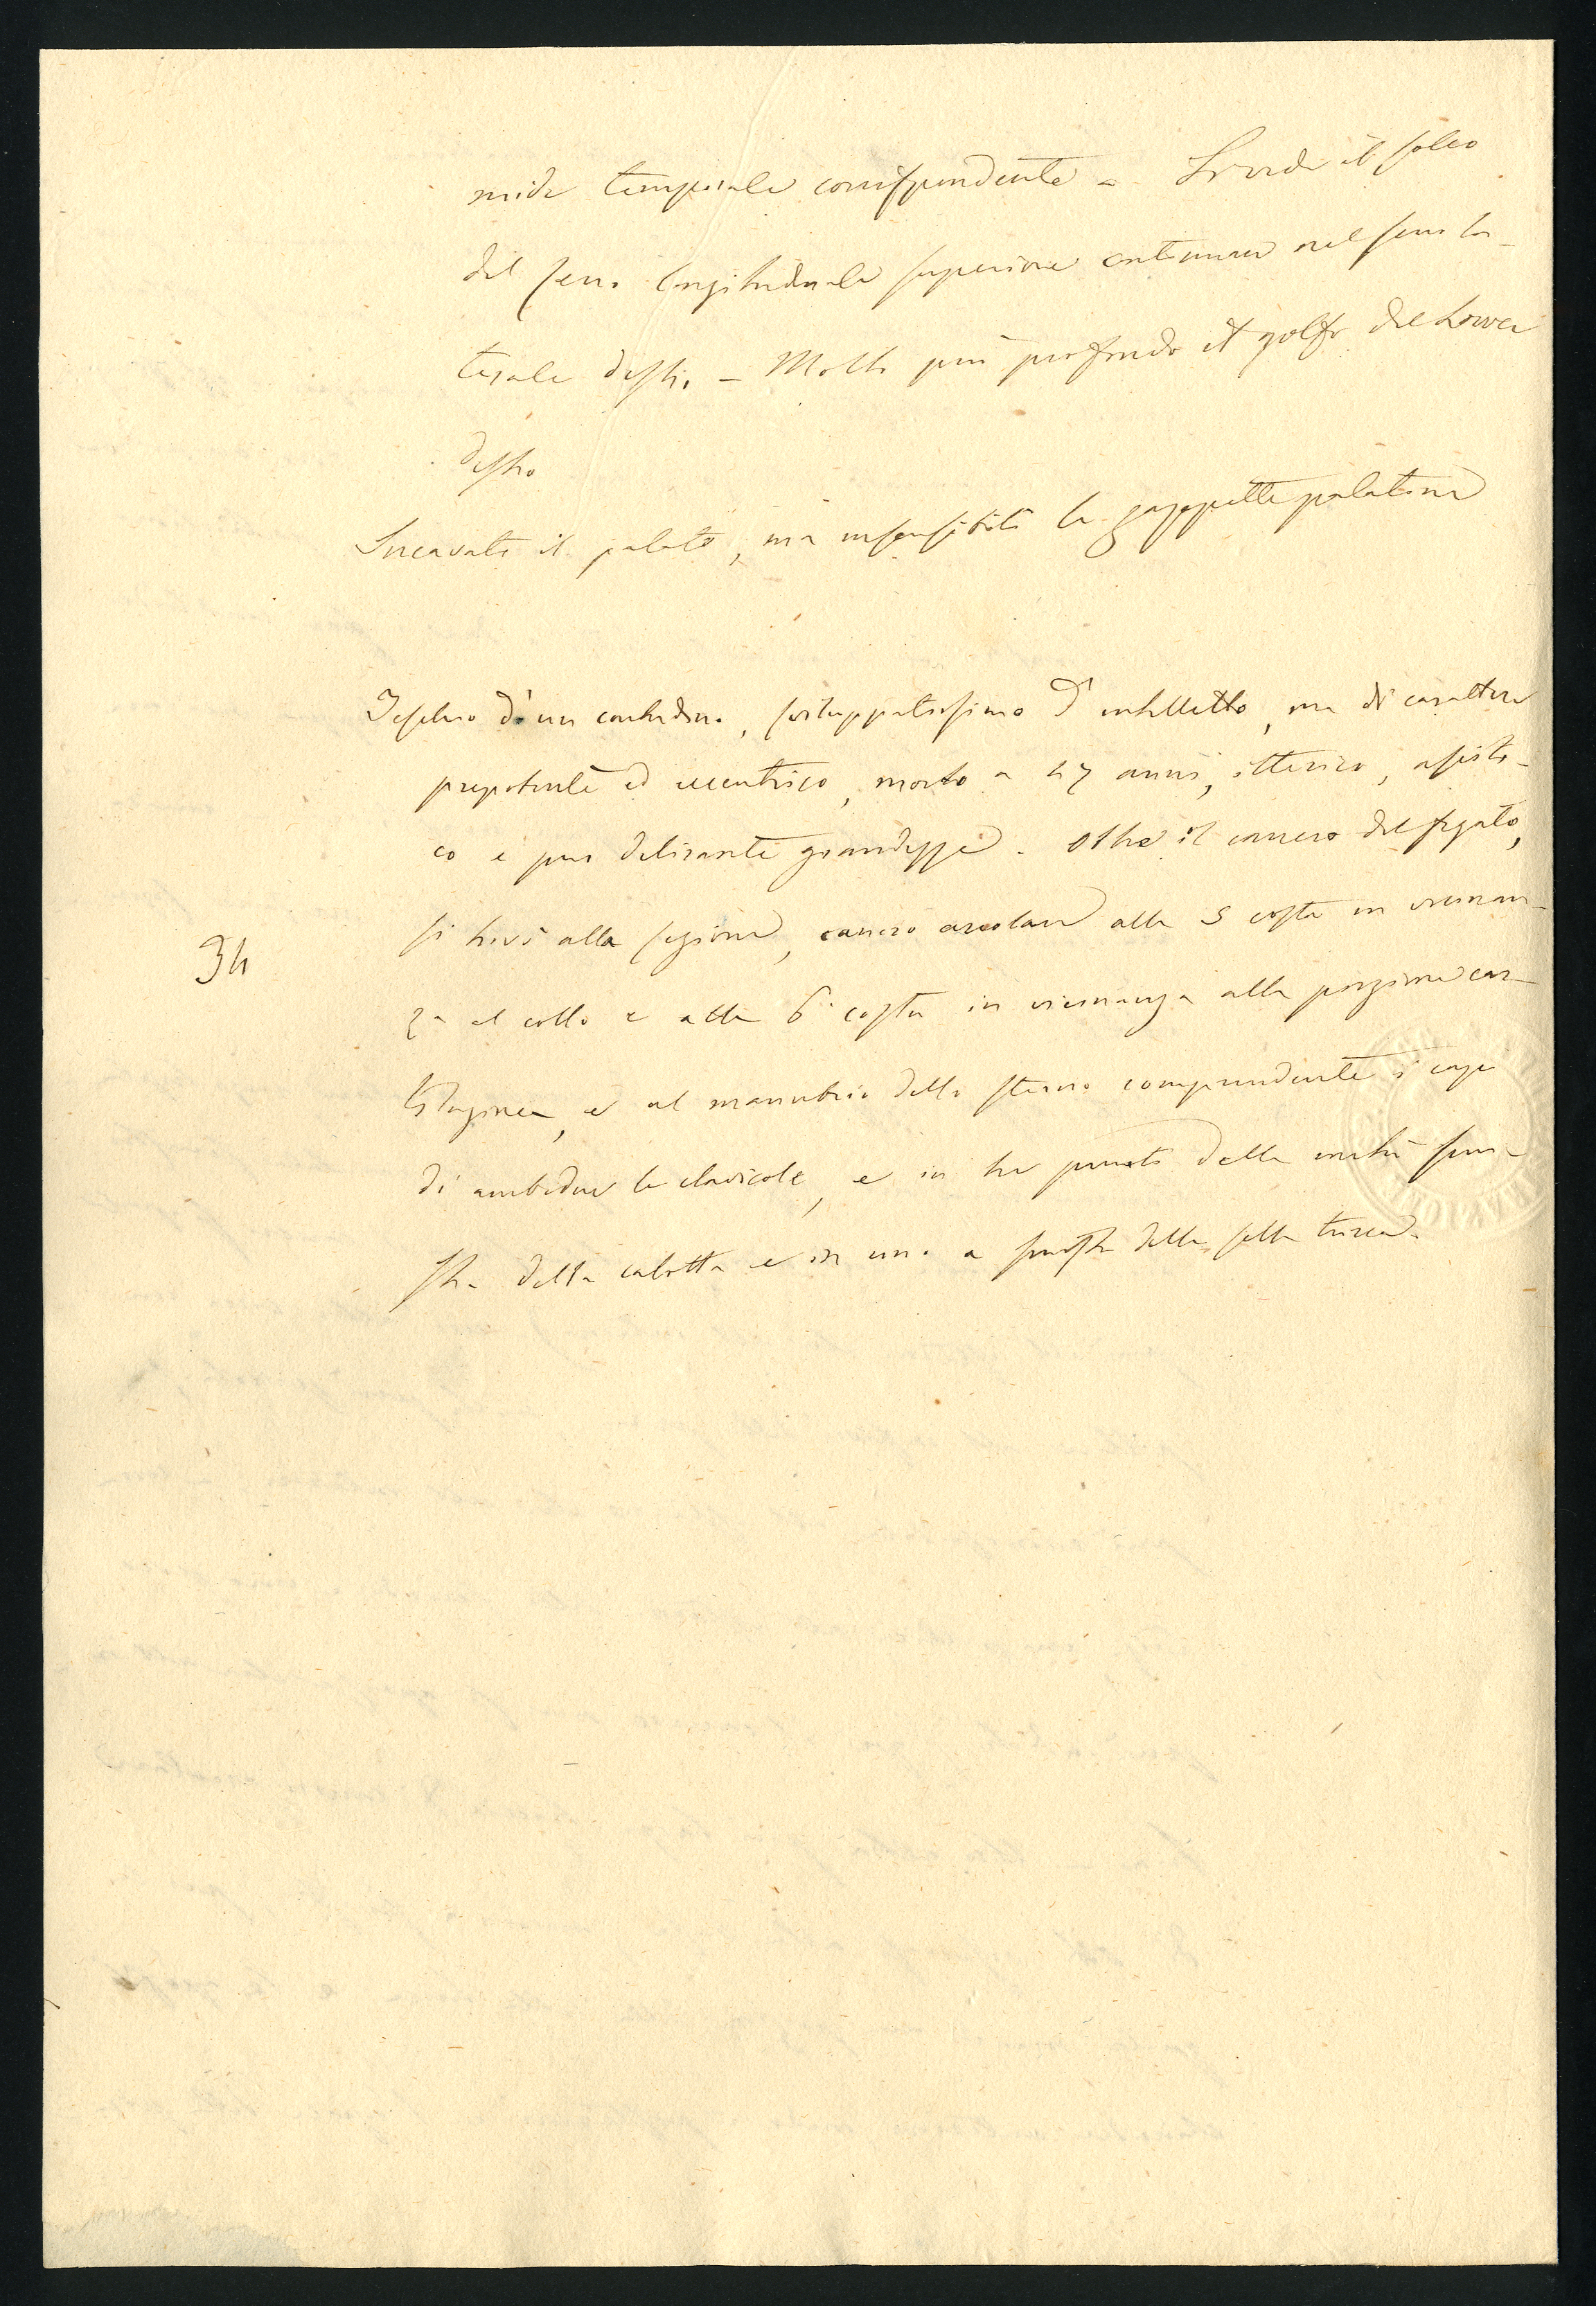 mide temporale corrispondente - Si vede il solco
del seno longitudinale superiore continuare nel seno la-
terale destro - Molto più profondo il golfo del Lower
destro
Incavato il palato, ma insensibili le gazzette palatine
Teschio di un contadino, sviluppatissimo d'intelletto, ma di carattere
prepotente ed eccentrico, morto a 47 anni, itterico, asisto-
co e pur delirante grandezze. Oltre il cancro del fegato,
si trovò alla sezione, cancro areolare alla 5 costa in vicinan-
za al collo e alla 6a costa in vicinanza alla porzione car-
34
tilaginea, e al manubrio dello sterno comprendente i capi
di ambedue le clavicole, e in tre punti della metà sini-
stra della calotta e in uno a sinistra della sella turcica.